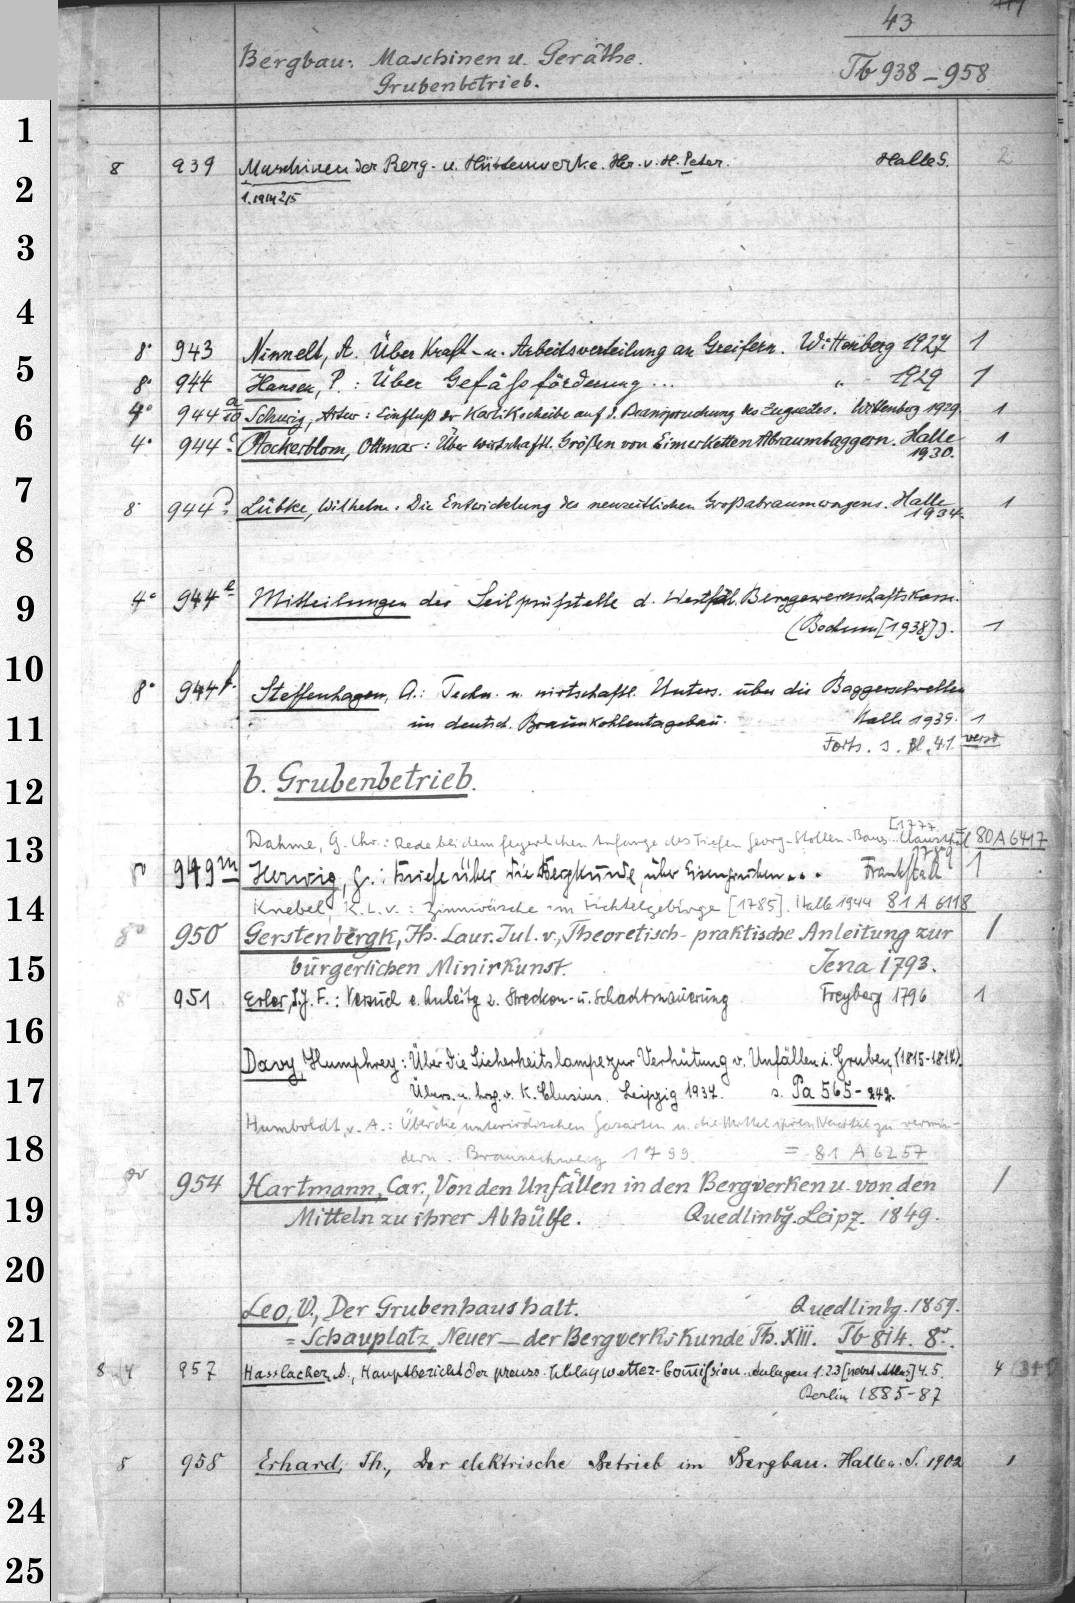 43
Bergbau: Maschinen u. Geräthe.
Grubenbetrieb.
Tb 938-958
1
8 939 Maschinen der Berg- u. Hüttenwerke. Hr. v. H. Peter. Halle S. 2
2
1. 1914/15
3
4
8° 943 Ninnelt, A. Über Kraft- u. Arbeitsverteilung an Greifern. Wittenberg 1927 1
5
8° 944 Hansen, P.: Über Gefäßförderung ... " 1929 1
4° 944 Schwig, Artur: Einfluß der Karlikscheibe auf d. Beanspruchung des Zugseites. Wittenberg 1929. 1
6
4° 944 c Ottmar: Über wirtschaftl. Größen von Eimerketten Abraumbaggern. Halle 1930. 1
7
8 944 D Lübke, Wilhelm. Die Entwicklung des neuzeitlichen Großabraumwagens. Halle 1934. 1
8
9
4° 944 e Mitteilungen der Seilprüfstelle d. Westfäl. Berggewerkschaftskasse.
(Bochum [1938]). 1
10
8° 944 f. Steffenhagen, A.: Techn. u. wirtschaftl. Unters. über die Baggerschwellen
11
im deutsch. Braunkohlentagebau. Halle 1939. 1
Forts. s. Bl. 41.
12
b. Grubenbetrieb.
[1777
13
Dahme, G. Chr.: Rede bei dem feyerlichen Anfange des Tiefen Georg-Stollen-Baus. Clausthal 80 A 6417
949 m Herwig, Briefe über die Bergkunde, über Eisengruben... 1
14
Knebel, K. L. v.: Zinnwäsche im Fichtelgebirge [1785]. Halle 1944 81 A 6118
8° 950 Gerstenbergk, Th. Laur. Jul. v., Theoretisch-praktische Anleitung zur 1
15
bürgerlichen Minirkunst. Jena 1793.
8° 951 Erler, J. F.: Versuch e. Anleitg z. Strecken- u. Schachtmauerung Freyberg 1796 1
16
Davy, Humphrey: Über die Sicherheitslampe zur Verhütung v. Unfällen i. Gruben, (1815-1817).
17
Übers. u. hrsg. v. K. Clusius. Leipzig 1937. s. Pa 565-242.
Humboldt, v. A.: Über die unterirdischen Gasarten u. die Mittel ihren Nachteil zu vermin-
18
dern. Braunschweig 1799. = 81 A 6257
8° 954 Hartmann, Car., Von den Unfällen in den Bergwerken u. von den 1
19
Mitteln zu ihrer Abhülfe. Quedlinbg. Leipz. 1849.
20
Leo, W., Der Grubenhaushalt. Quedlinbg. 1859.
21
= Schauplatz, Neuer — der Bergwerkskunde Th. XIII. Tb 814. 8°.
8. 4 957 Hasslacher, A., Hauptbericht der preuss. Schlagwetter-Comission. Anlagen 1.2.3 [nebst Atlas] 4.5. 4
22
Berlin 1885-87
23
8 958 Erhard, Th., Der elektrische Betrieb im Bergbau. Halle a. S. 1902 1
24
25